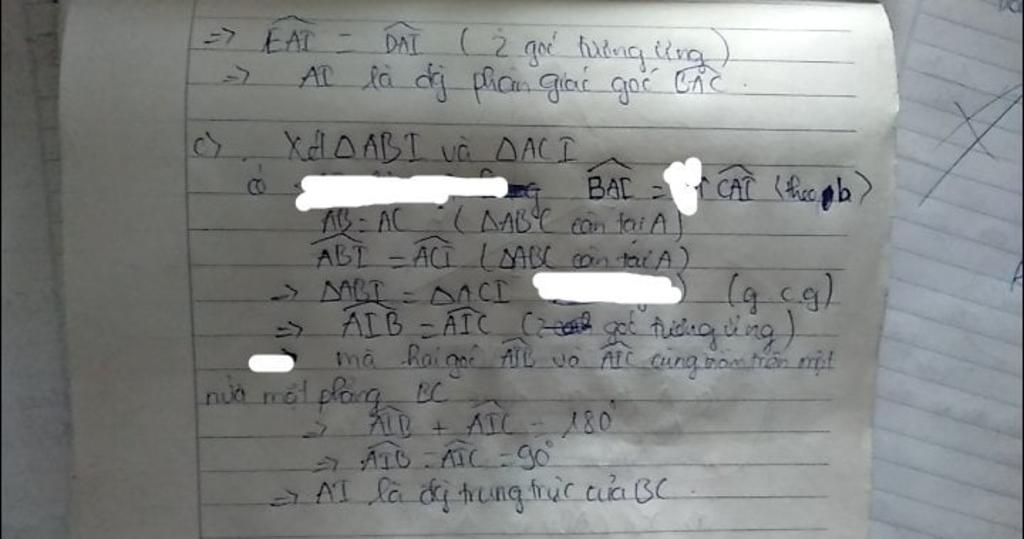 => EAI = DAI (2 góc tương ứng)
=> AI là đg phân giác góc BAC.
c) . Xét ΔABI và ΔACI
có BAI = CAI (theo b)
AB = AC (ΔABC cân tại A)
ABI = ACI (ΔABC cân tại A)
=> ΔABI = ΔACI (g.c.g)
=> AIB = AIC (2 góc tương ứng)
mà hai góc AIB và AIC cùng nằm trên một
nửa mặt phẳng BC
=> AIB + AIC = 180°
=> AIB = AIC = 90°
=> AI là đg trung trực của BC.